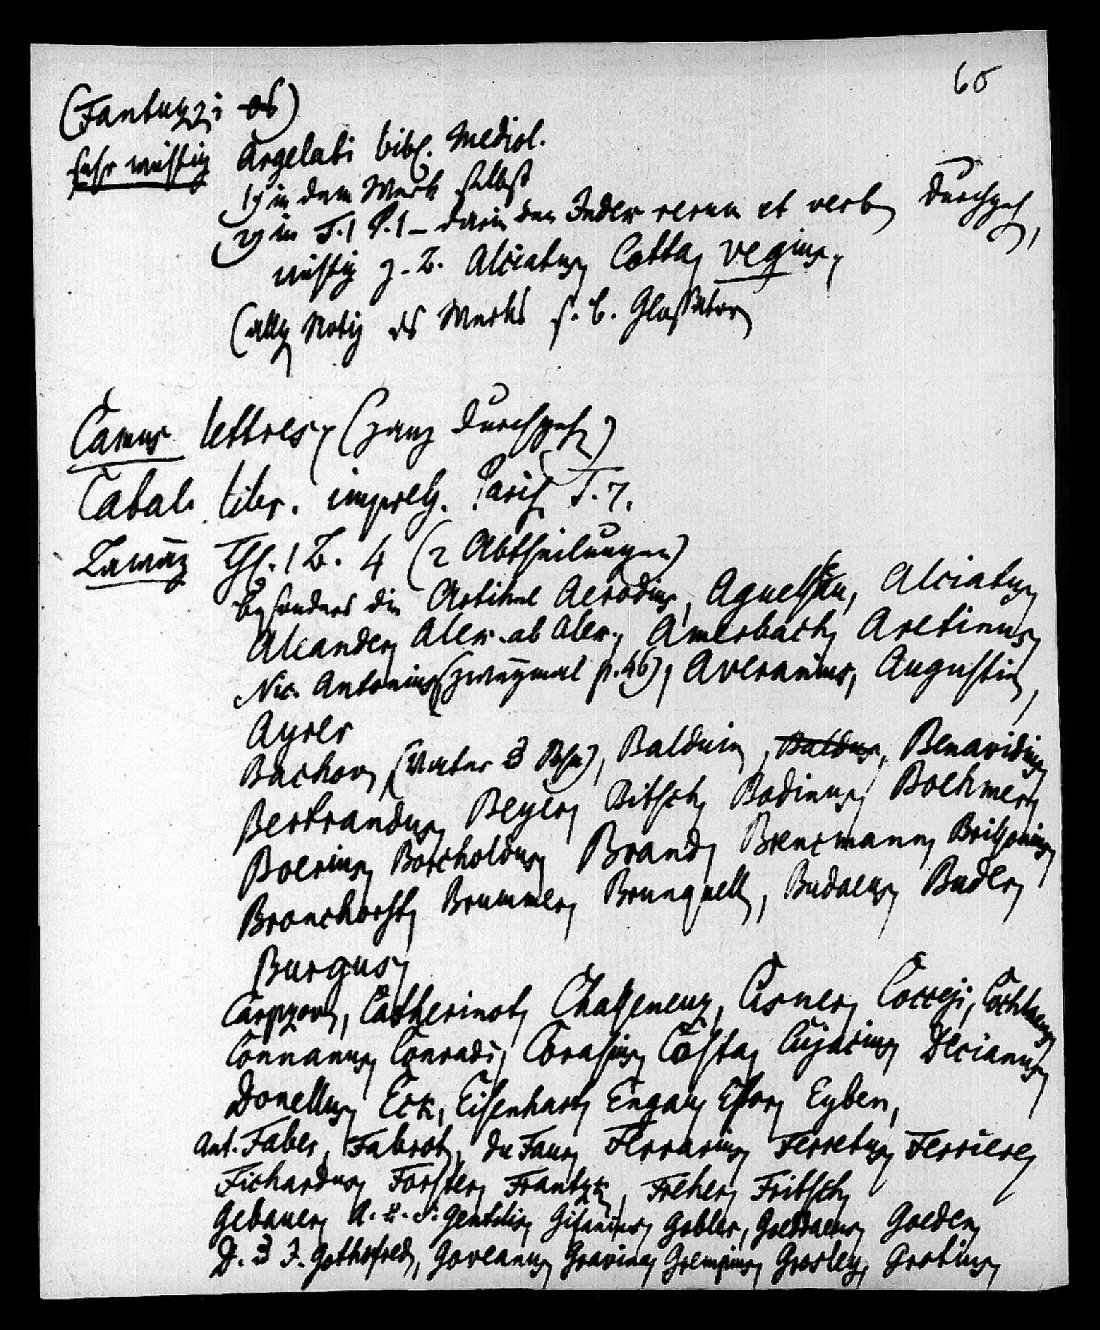 60
(Fantuzzi
sehr wichtig Argelati bibl. Mediol.
1) in dem Werk selbst
2) in T. 1 P. 1 – darin den Index rerum et verb. durchgeh,
wichtig z. B. Alciatus, Cotta, Vegius,
(allg. Notiz des Werks s. b. Glossator
Camus lettres, (ganz durchgeh.)
Catal. libr. impress. Paris. T. 7.
Taisand Th. 1 B. 4 (2 Abtheilungen)
besonders die Artikel Aerodius, Agueseau, Alciatus,
Aleander, Alex. ab Alex., Amerbach, Aretinus,
Nic. Antonius (zweymal p. 46), Averanius, Augustin,
Ayrer
Bachov, (Vater & Sohn), Balduin, Baldus, Benavidius,
Bertrandus, Beyer, Bitsch, Bodinus, Boehmer,
Boerius, Borcholdus, Brand, Brencmann, Brissonius,
Bronchorst, Brummer, Brunquell, Budaeus, Buder,
Burgus,
Carpzov, Catherinot, Chasseneux, Cisner, Cocceji,
Connanus, Conradi, Corasius, Costa, Cujacius, Decianus,
Donellus, Eck, Eisenhart, Engau, Estor, Eyben,
Ant. Faber, Fabrot, du Faur, Ferrarius, Ferretus, Ferriere,
Fichardus, Forster, Frantzk, Freher, Fritsch,
Gebauer, A. & S. Gentilis, Gifanius, Gobler, Goldaeus, Goeden,
D. & J. Gothofred, Goveanus, Gravina, Grempius, Grosley, Grotius,